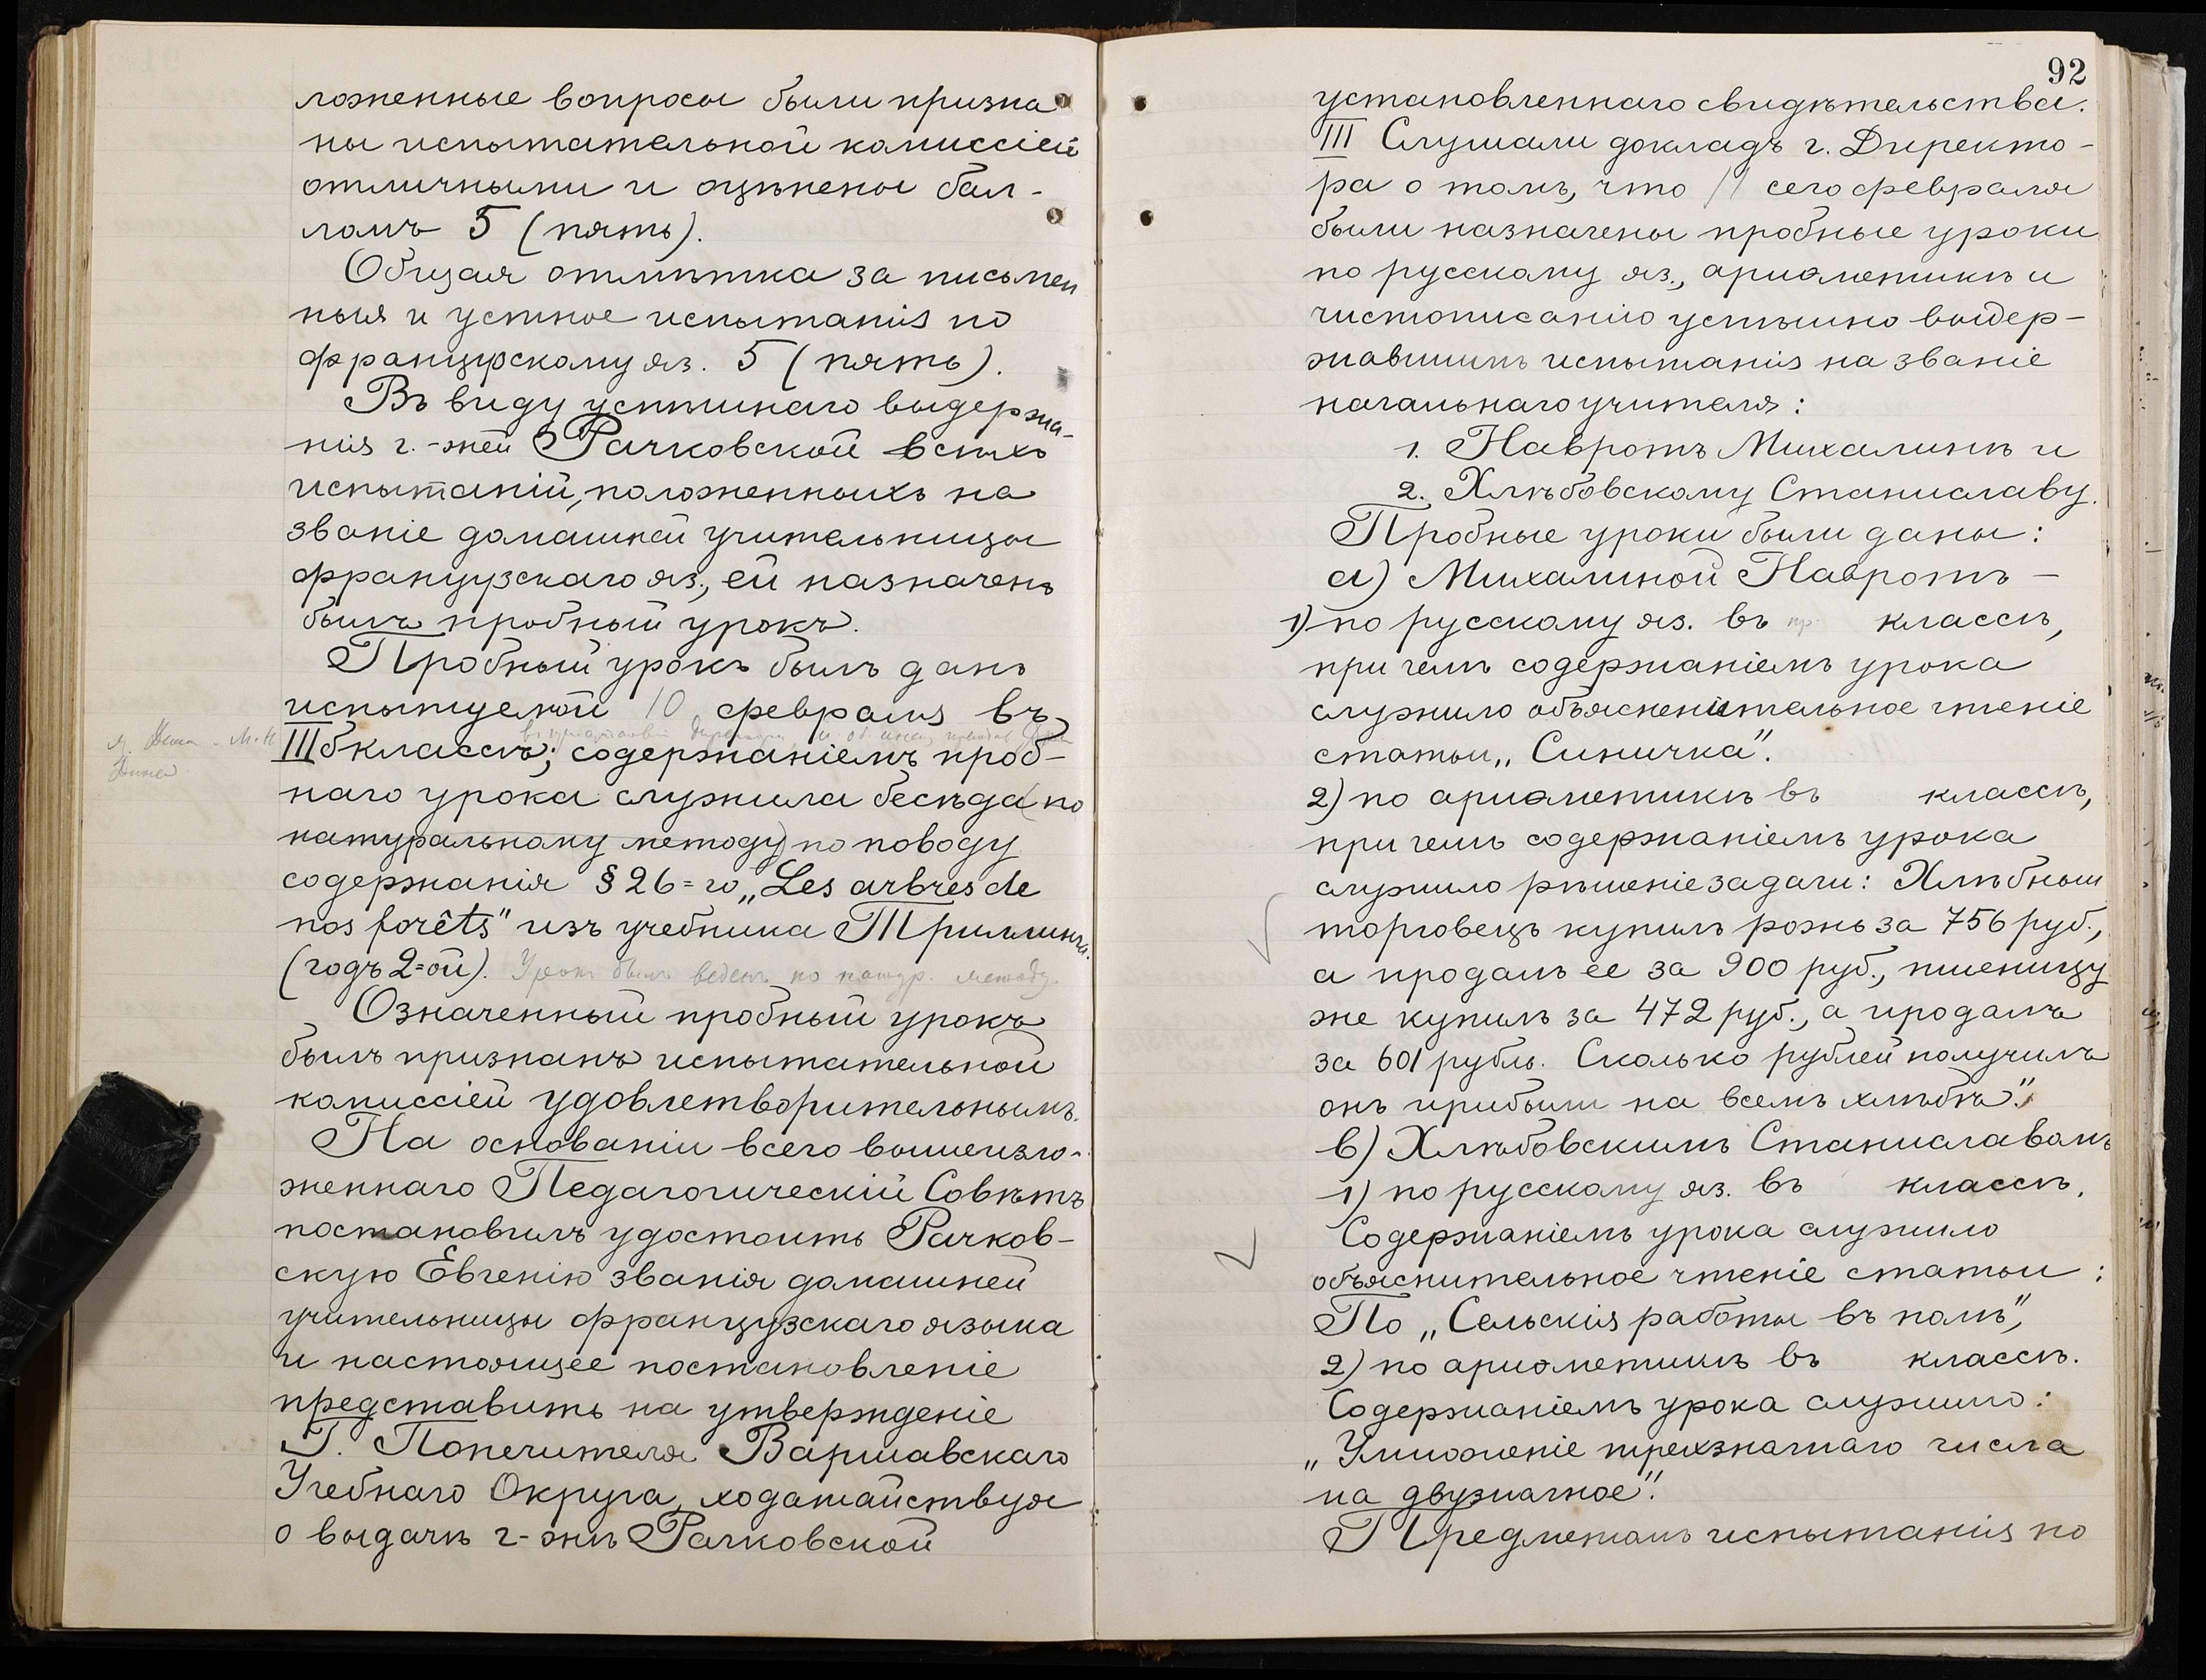 ложенные вопросы были призна
ны испытательной комиссіей
отличными и оцѣнены бал-
ломъ 5 (пять).
Общая отмѣтка за письмен
ныя и устное испытанія по
французскому яз. 5 (пять).
Въ виду успѣшнаго выдержа-
нія г.-жей Рачковской всѣхъ
испытаній, положенныхъ на
званіе домашней учительницы
французскаго яз., ей назначенъ
былъ пробный урокъ.
Пробный урокъ былъ данъ
испытуемой 10 февраля въ
III б классѣ; содержаніемъ проб-
наго урока служила бесѣда (по
натуральному методу) по поводу
содержанія § 26=го „Les arbres de
nos forêts" изъ учебника Триллинга.
(годъ 2=ой). Урокъ былъ веденъ по натур. методу.
Означенный пробный урокъ
былъ признанъ испытательной
комиссіей удовлетворительнымъ.
На основаніи всего вышеизло-
женнаго Педагогическій Совѣтъ
постановилъ удостоить Рачков-
скую Евгенію званія домашней
учительницы французскаго языка
и настоящее постановленіе
представить на утвержденіе
Г. Попечителя Варшавскаго
Учебнаго Округа, ходатайствуя
о выдачѣ г-жѣ Рачковской
92
установленнаго свидѣтельства.
III Слушали докладъ г. Директо-
ра о томъ, что 11 сего февраля
были назначены пробные уроки
по русскому яз., ариѳметикѣ и
чистописанію успѣшно выдер-
жавшимъ испытанія на званіе
начальнаго учителя:
1. Навротъ Михалинѣ и
2. Хлѣбовскому Станиславу.
Пробные уроки были даны:
а) Михалиной Навротъ -
1) по русскому яз. въ пр. классѣ,
при чемъ содержаніемъ урока
служило объясненительное чтеніе
статьи „Синичка".
2) по ариѳметикѣ въ классѣ,
при чемъ содержаніемъ урока
служило рѣшеніе задачи: Хлѣбный
торговецъ купилъ рожь за 756 руб.,
а продалъ ее за 900 руб., пшеницу
же купилъ за 472 руб., а продалъ
за 601 рубль. Сколько рублей получилъ
онъ прибыли на всемъ хлѣбѣ".
в) Хлѣбовскимъ Станиславомъ
1) по русскому яз. въ классѣ.
Содержаніемъ урока служило
объяснительное чтеніе статьи:
По „Сельскія работы въ полѣ",
2) по ариѳметикѣ въ классѣ.
Содержаніемъ урока служило:
„Умноженіе трехзначнаго числа
на двузначное".
Предметомъ испытанія по